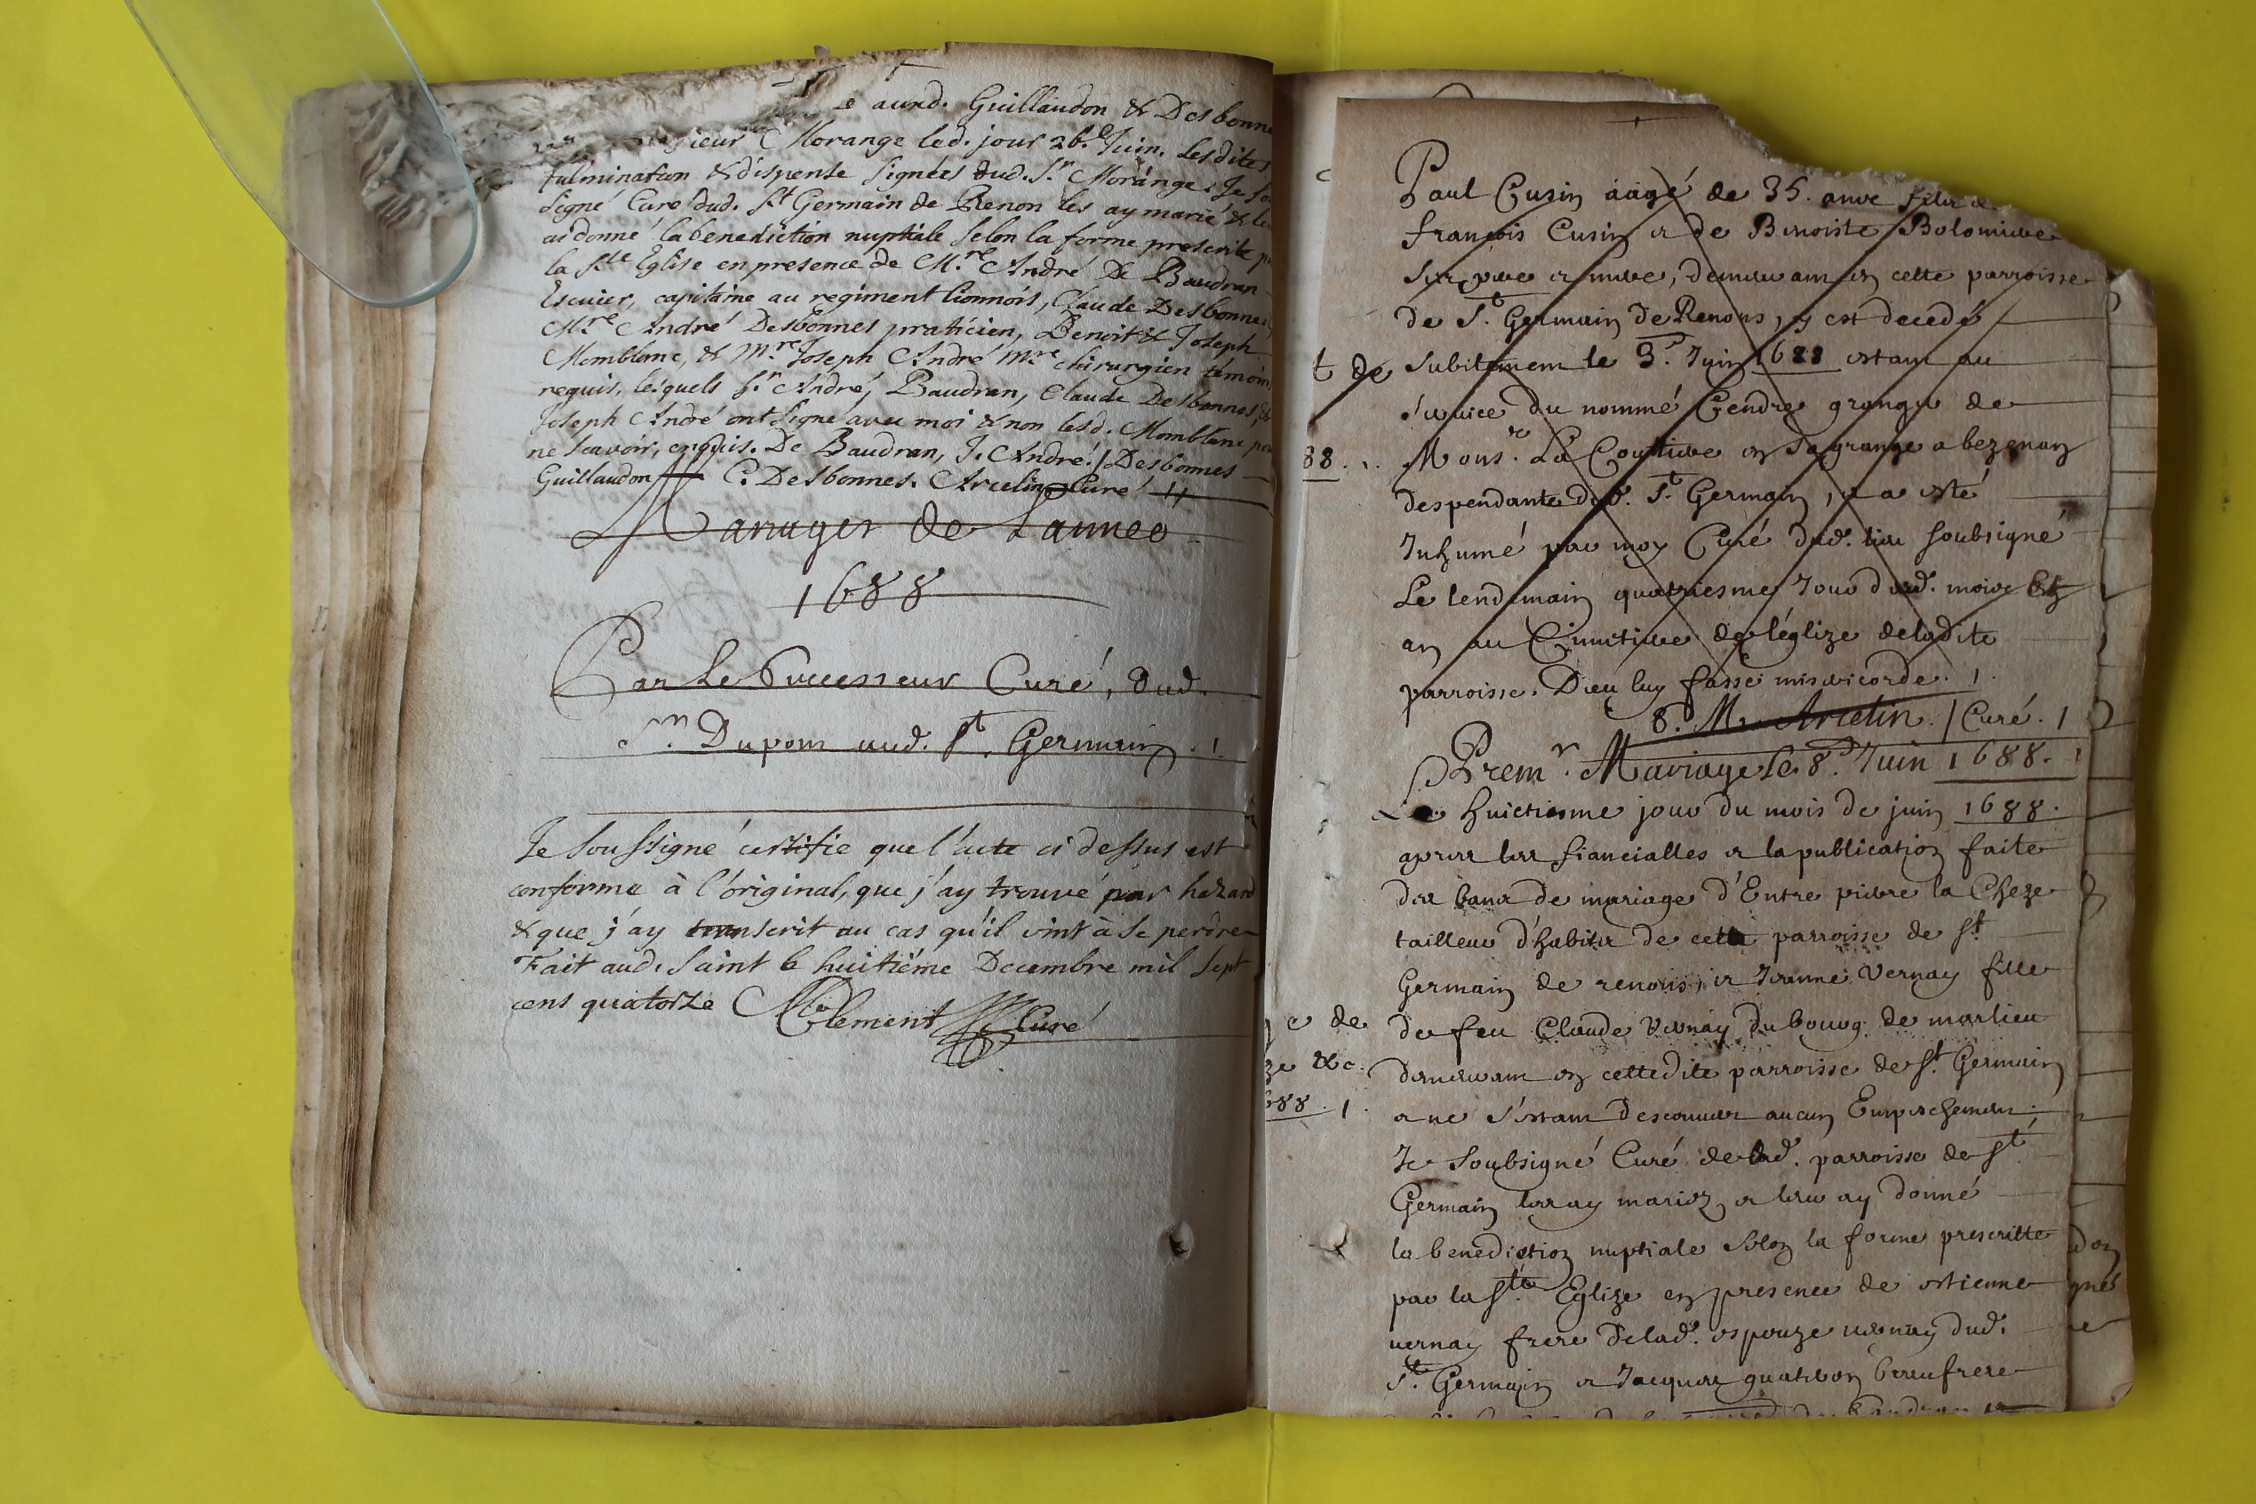 aund. Guillaudon & Desbonne
sieur Morange led. jour 26.e Juin. Lesdites
fulmination & dispense signées dud. S.r Morange. Je so
signé Curé dud. St Germain de Renon les ay marié & le
ai donné la benediction nuptiale selon la forme prescrite p
la Ste Eglise en presence de M.re André De Baudran
Escuier, capitaine au regiment Lionnois, Claude Desbonnes,
M.re André Desbonnes praticien, Benoit & Joseph
Momblanc, & M.re Joseph André M.re chirurgien temoin
requis, lesquels s.r André, Baudran, Claude Desbonnes, &
Joseph André ont signé avec moi & non lesd. Momblanc po
ne scavoir, enquis. De Baudran, J. André. / Desbonnes
Guillaudon C. Desbonnes. Arcelin Curé
Mariages de Lannee
1688
Par Le Successeur Curé, dud.
S.n Dupont aud. St. Germain. 1
Je soussigné certifie que l'acte ci dessus est
conforme à l'original, que j'ay trouvé par hazard
& que j'ay transcrit au cas qu'il vint à se perdre
Fait aud. Saint G huitiéme Decembre mil sept
cens quatorze Clement Curé
Paul Cusin aagé de 35. ans filz
françois Cusin et de Benoiste Bolomier
ses pere et mere, demeurant en cette parroisse
de St. Germain de Renons, y est decedé
t de
subitement le 3.e Juin 1688 estant au
service du nommé Gendre granger de
88.
Mons.r La Coustive en sa grange a bezenan
despendante dud. St. Germain, et a esté
Inhumé par moy Curé dud. lieu soubsigné
Le lendemain quatriesme Jour dud. mois et
an au Cimetiere de l'églize deladite
parroisse. Dieu luy fasse misericorde. 1.
M. Arcelin. / Curé. 1
Prem.r Mariage le 8.e Juin 1688. 1
Le huictiesme jour du mois de juin 1688.
apres les fiancialles et la publication faite
des bans de mariage d'Entre pierre la Cheze
tailleur d'habits de cette parroisse de St.
Germain de renons, et Jeanne Vernay fille
de feu Claude Vernay du bourg de marlieu
e de
demeurant en cettedite parroisse de St. Germain
ze &c.
a ne s'estant descouvert aucun Empeschement,
688. 1.
Je soubsigné Curé de lad. parroisse de St.
Germain les ay mariez et leur ay donné
la benediction nuptiale selon la forme prescritte
par la Ste. Eglize en presence de estienne
vernay frere delad. espouze vernay dud.
St. Germain et Jacques quatrvon beaufrere